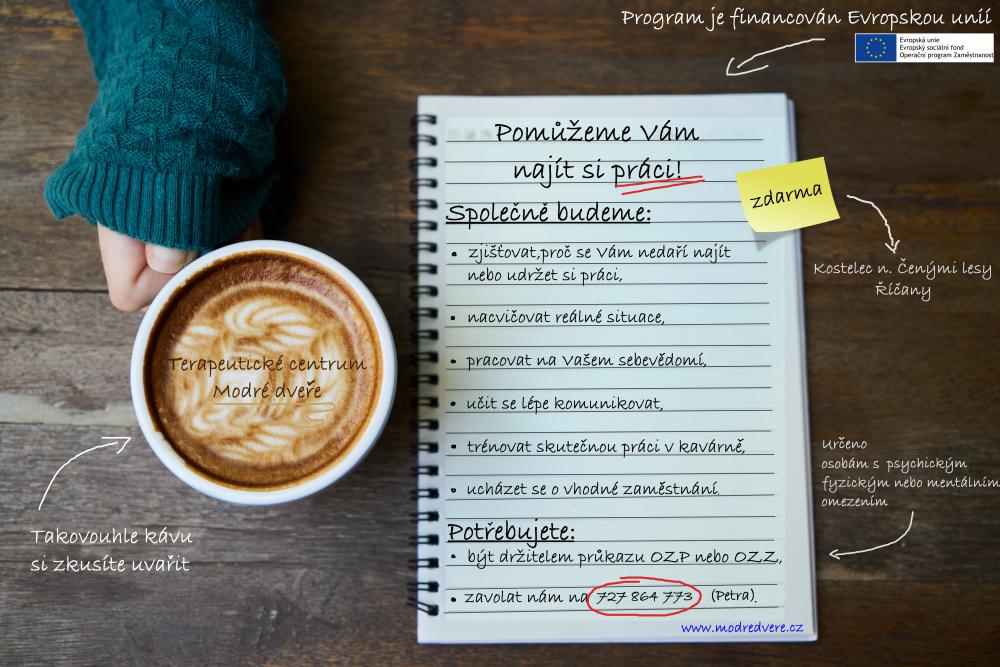 Program je financován Evropskou unií
Evropská unie
Evropský sociální fond
Operační program Zaměstnanost
Pomůžeme Vám
najít si práci!
zdarma
Společně budeme:
• zjišťovat,proč se Vám nedaří najít
nebo udržet si práci,
• nacvičovat reálné situace,
• pracovat na Vašem sebevědomí,
• učit se lépe komunikovat,
• trénovat skutečnou práci v kavárně,
• ucházet se o vhodné zaměstnání.
Potřebujete:
• být držitelem průkazu OZP nebo OZZ,
• zavolat nám na 727 864 773 (Petra).
www.modredvere.cz
Kostelec n. Čenými lesy
Říčany
Určeno
osobám s psychickým
fyzickým nebo mentálním
omezením
Terapeutické centrum
Modré dveře
Takovouhle kávu
si zkusíte uvařit